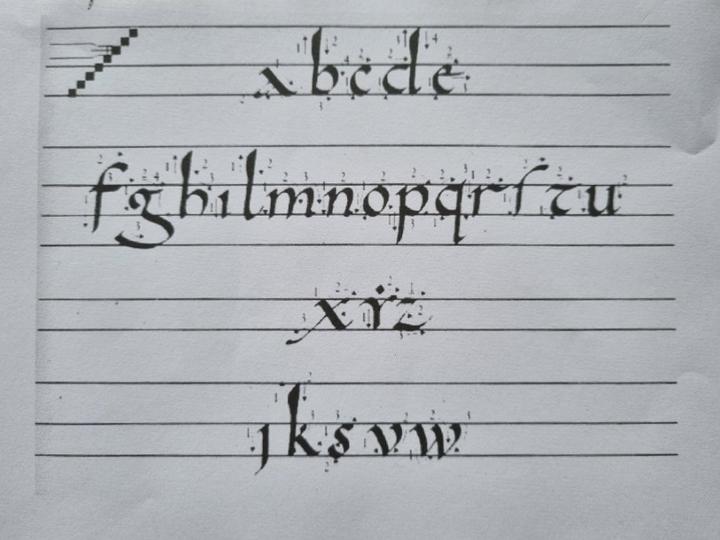 abcde
fghılmnopqrſτu
xyz
jksvw